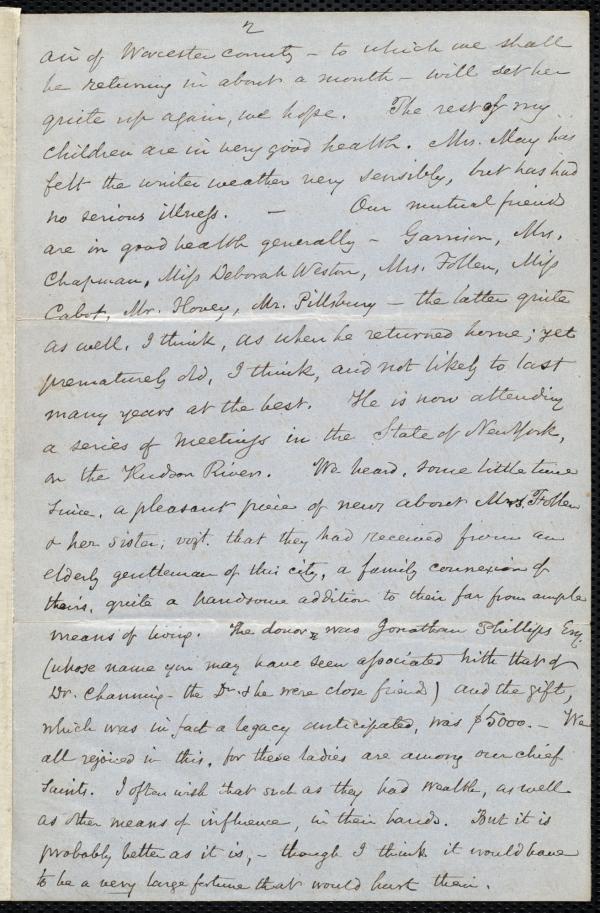 2
air of Worcester county – to which we shall
be returning in about a month – will set her
quite up again, we hope. The rest of my
children are in very good health. Mrs. May has
felt the winter weather very sensibly, but has had
no serious illness. — Our mutual friends
are in good health generally – Garrison, Mrs.
Chapman, Miss Deborah Weston, Mrs. Follen, Miss
Cabot, Mr. Hovey, Mr. Pillsbury – the latter quite
as well, I think, as when he returned home; yet
prematurely old, I think, and not likely to last
many years at the best. He is now attending
a series of meetings in the State of New York,
on the Hudson River. We heard, some little time
since, a pleasant piece of news about Mrs. Follen
& her sister; vizt. that they had received from an
elderly gentleman of this city, a family connexion of
theirs, quite a handsome addition to their far from ample
means of living. The donor was Jonathan Phillips Esq.
(whose name you may have seen associated with that of
Dr. Channing – the Dr. & he were close friends) and the gift,
which was in fact a legacy anticipated, was $5000. – We
all rejoiced in this, for these ladies are among our chief
Saints. I often wish that such as they had wealth, as well
as other means of influence, in their hands. But it is
probably better as it is, – though I think it would have
to be a very large fortune that would hurt them.